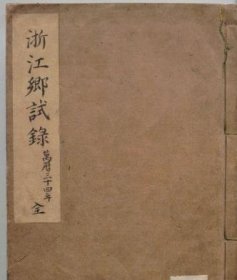 浙江鄉試錄
萬曆三十四年
全